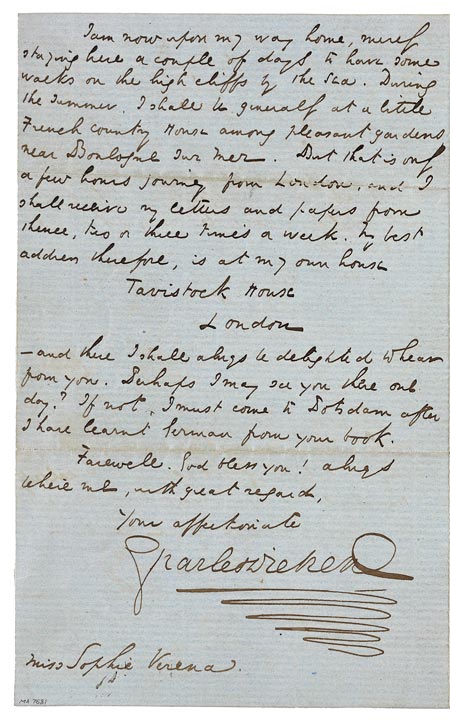 I am now upon my way home, merely
staying here a couple of days to have some
walks on the high cliffs by the Sea. During
the Summer, I shall be generally at a little
French country House among pleasant gardens
near Boulogne Sur Mer. But that is only
a few hours journey from London, and I
shall receive my letters and papers from
thence, two or three times a week. My best
address therefore, is at my own house
Tavistock House
London
— and there I shall always be delighted to hear
from you. Perhaps I may see you there one
day? If not, I must come to Potsdam after
I have learnt German from your book.
Farewell. God bless you! Always
believe me, with great regard,
Your affectionate
Charles Dickens
Miss Sophie Verena.
MA 7631